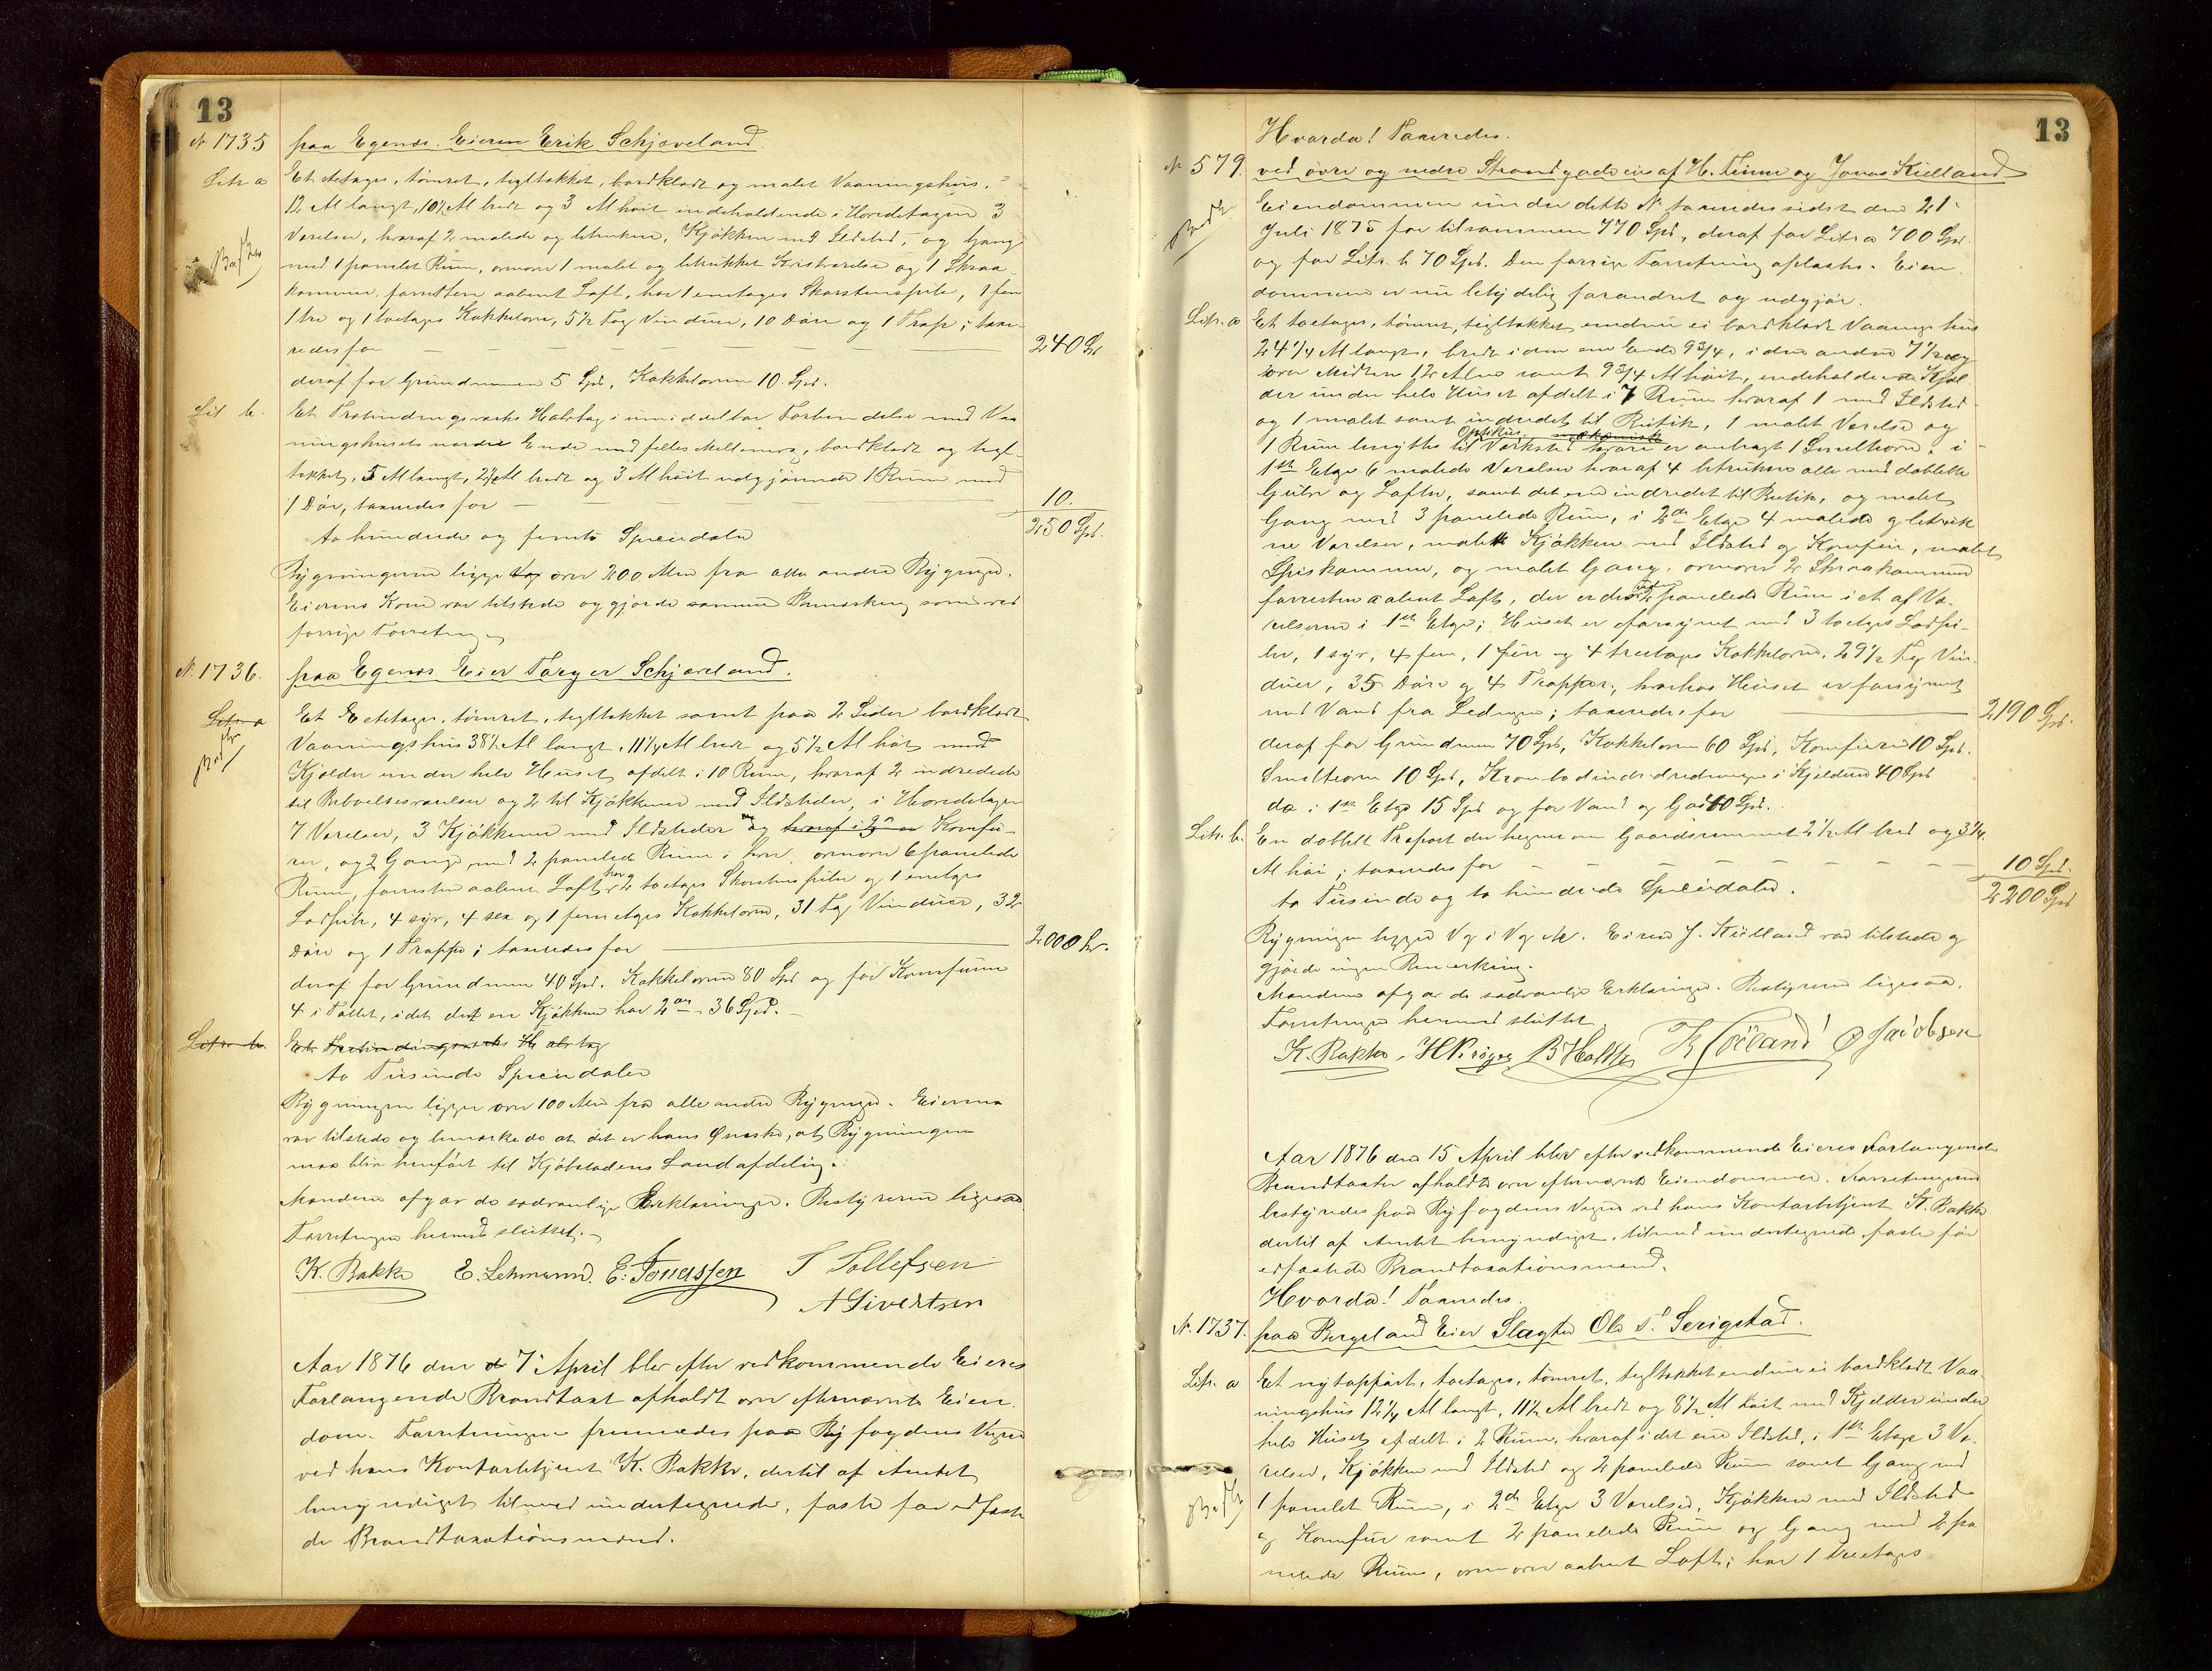 13
N. 1735 paa Egenæs. Eieren Erik Schjæveland.
Litr a Et etetages, tømret, tegltækket, bordklædt og malet Vaaningshus,
12 Al langt, 10½ Al bredt og 3 Al høit indeholdende i Hovedetagen 3
Værelser, hvoraf 2 malede og betrukne, Kjøkken med Ildsted, og Gang
med 1 panelet Rum, ovenover 1 malet og betrukket Kvistværelse og 1 Skraa-
kammer, forresten aabent Loft, har 1 enetages Skorstenspibe, 1 fem
1 tre og 1 toetages Kakkelovn, 5½ Fag Vinduer, 10 Døre og 1 Trap; taxe-
redes for 240 Spd
deraf for Grundmuren 5 Spd, Kakkelovnen 10 Spd.
Lit b. Et Udbindingsværks Halvtag i umiddelbar Forbindelse med Vaa
ningshusets nordre Ende med fælles Mellemvæg, bordklædt og tegl-
tækket, 5 Al langt, 2½ Al bredt og 3 Al høit udgjørende 1 Rum med
1 Dør, taxeredes for 10.
to hundrede og femti Speciedaler 250 Spd.
Bygningerne ligger over 200 Alen fra alle andre Bygninger.
Eierens Kone var tilstede og gjorde samme Bemærkning som ved
forrige Forretning
N. 1736. paa Egenæs Eier Torger Schjæveland.
Litr a Et Etetages, tømret, tegltækket samt paa 2 Sider bordklædt
Vaaningshus 38½ Al langt, 11¼ Al bredt og 5½ Al høit med
Kjelder under hele Huset afdelt i 10 Rum, hvoraf 2 indredede
til Beboelsesværelser og 2 til Kjøkkener med Ildsteder, i Hovedetagen
7 Værelser, 3 Kjøkkener med Ildsteder og hvoraf i Komfu-
rer, og 2 Gange med 2 panelede Rum i hver, ovenover 6 panelede
Rum, forresten aabent Loft, har 2 toetages Skorstenspiber og 1 enetages
Lodpibe, 4 syv, 4 sex og 1 femetages Kakkelovn, 31 Fag Vinduer, 32
Døre og 1 Trappe; taxeredes for 2000 Spd.
deraf for Grundmuren 40 Spd. Kakkelovnen 80 Spd og for Komfurene
4 i Tallet, idet det ene Kjøkken har 2 - 36 Spd.
Litr b. Et Udbindingsværks Halvtag
to Tusinde Speciedaler
Bygningen ligger over 100 Alen fra alle andre Bygninger. Eieren
var tilstede og bemærkede at det er hans Ønske, at Bygningen
maa blive henført til Kjøbstadens Landafdeling.
Mændene afgav de sædvanlige Erklæringer. Bestyreren ligesaa.
Forretningen hermed sluttet.
K. Bakke E. Lehmann. E. Jonassen T Tollefsen
A Sivertsen
Aar 1876 den 7 April blev efter vedkommende Eieres
Forlangende Brandtaxt afholdt over efternævnte Eien-
dom. Forretningen fremmedes paa Byfogdens Vegne
ved hans Kontorbetjent K. Bakke, dertil af Amtet
bemyndiget tilmed undertegnede, faste for edfæste-
de Brandtaxationsmænd.
13
Hvorda! Taxeredes.
N 579. ved øvre og nedre Strandgade eies af H. Finne og Jonas Kielland
Eiendommen under dette N taxeredes sidst den 21
Juli 1875 for tilsammen 770 Spd, deraf for Litr a 700 Spd.
og for Litr. b 70 Spd. Den forrige Forretning oplæstes. Eien-
dommen er nu betydelig forandret og udgjør.
Litr. a Et toetages, tømret, tegltækket endnu ei bordklædt Vaaningshus
24¼ Al langt, bredt i den ene Ende 9¾, i den anden 7½ og
over Midten 12 Alen samt 9¾ Al høit, indeholdende Kjel-
der under hele Huset afdelt i 7 Rum hvoraf 1 med Ildsted
og 1 malet samt indredet til Butik, 1 malet Værelse og
1 Rum benyttes til Optikus Værksted hvori er anbragt 1 Smelteovn. i
1ste Etage 6 malede Værelser hvoraf 4 betrukne alle med dobbelte
Gulve og Lofter, samt det ene indredet til Butik, og malet
Gang med 3 panelede Rum, i 2den Etage 4 malede og betruk-
ne Værelser, malet Kjøkken med Ildsted og Komfur, malet
Spiskammer, og malet Gang, ovenover 2 Skraakammer
forresten aabent Loft, der er desuden 2 panelede Rum i et af Væ-
relserne i 1ste Etage; Huset er forsynet med 3 toetages Lodpi-
ber, 1 syv, 4 fem, 1 fire og 4 treetages Kakkelovne, 29½ Fag Vin-
duer, 35 Døre og 4 Trapper, hvorhos Huset er forsynet
med Vand fra Ledningen; taxeredes for 2190 Spd.
deraf for Grundmuren 70 Spd, Kakkelovnen 60 Spd, Komfuret 10 Spd.
Smelteovnen 10 Spd, Krambodindredningen i Kjelderen 40 Spd
do i 1ste Etage 15 Spd og for Vand og Gas 60 Spd.
Litr. b. En dobbelt Træport der hegner om Gaardsrummet 2½ Al bred og 3¼
Al høi; taxeredes for 10 Spd.
to Tusinde og to hundrede Speciedaler. 2200 Spd
Bygningen ligger V og i V og N. Eieren J. Kielland var tilstede og
gjorde ingen Bemærkning.
Mændene afgav de sædvanlige Erklæringer. Bestyreren ligesaa.
Forretningen hermed sluttet
K. Bakke. B Holst O Jacobsen
Aar 1876 den 15 April blev efter vedkommende Eieres Forlangende
Brandtaxter afholdt over efternævnte Eiendommer. Forretningerne
bestyredes paa Byfogdens Vegne ved hans Kontorbetjent K. Bakke
dertil af Amtet bemyndiget, tilmed undertegnede faste for
edfæstede Brandtaxationsmænd.
Hvorda! Taxeredes.
N. 1737. paa Bergeland Eier Slagter Ole S. Serigstad.
Litr. a Et nyt opført, toetages, tømret, tegltækket endnu ei bordklædt Vaa-
ningshus 12¼ Al langt, 11½ Al bredt og 8½ Al høit med Kjelder under
hele Huset afdelt i 2 Rum, hvoraf i det ene Ildsted, i 1ste Etage 3 Væ-
relser, Kjøkken med Ildsted og 2 panelede Rum samt Gang med
1 panelet Rum, i 2den Etage 3 Værelser, Kjøkken med Ildsted
og Komfur samt 2 panelede Rum og Gang med 2 pa
nelede Rum, ovenover aabent Loft; har 1 treetages